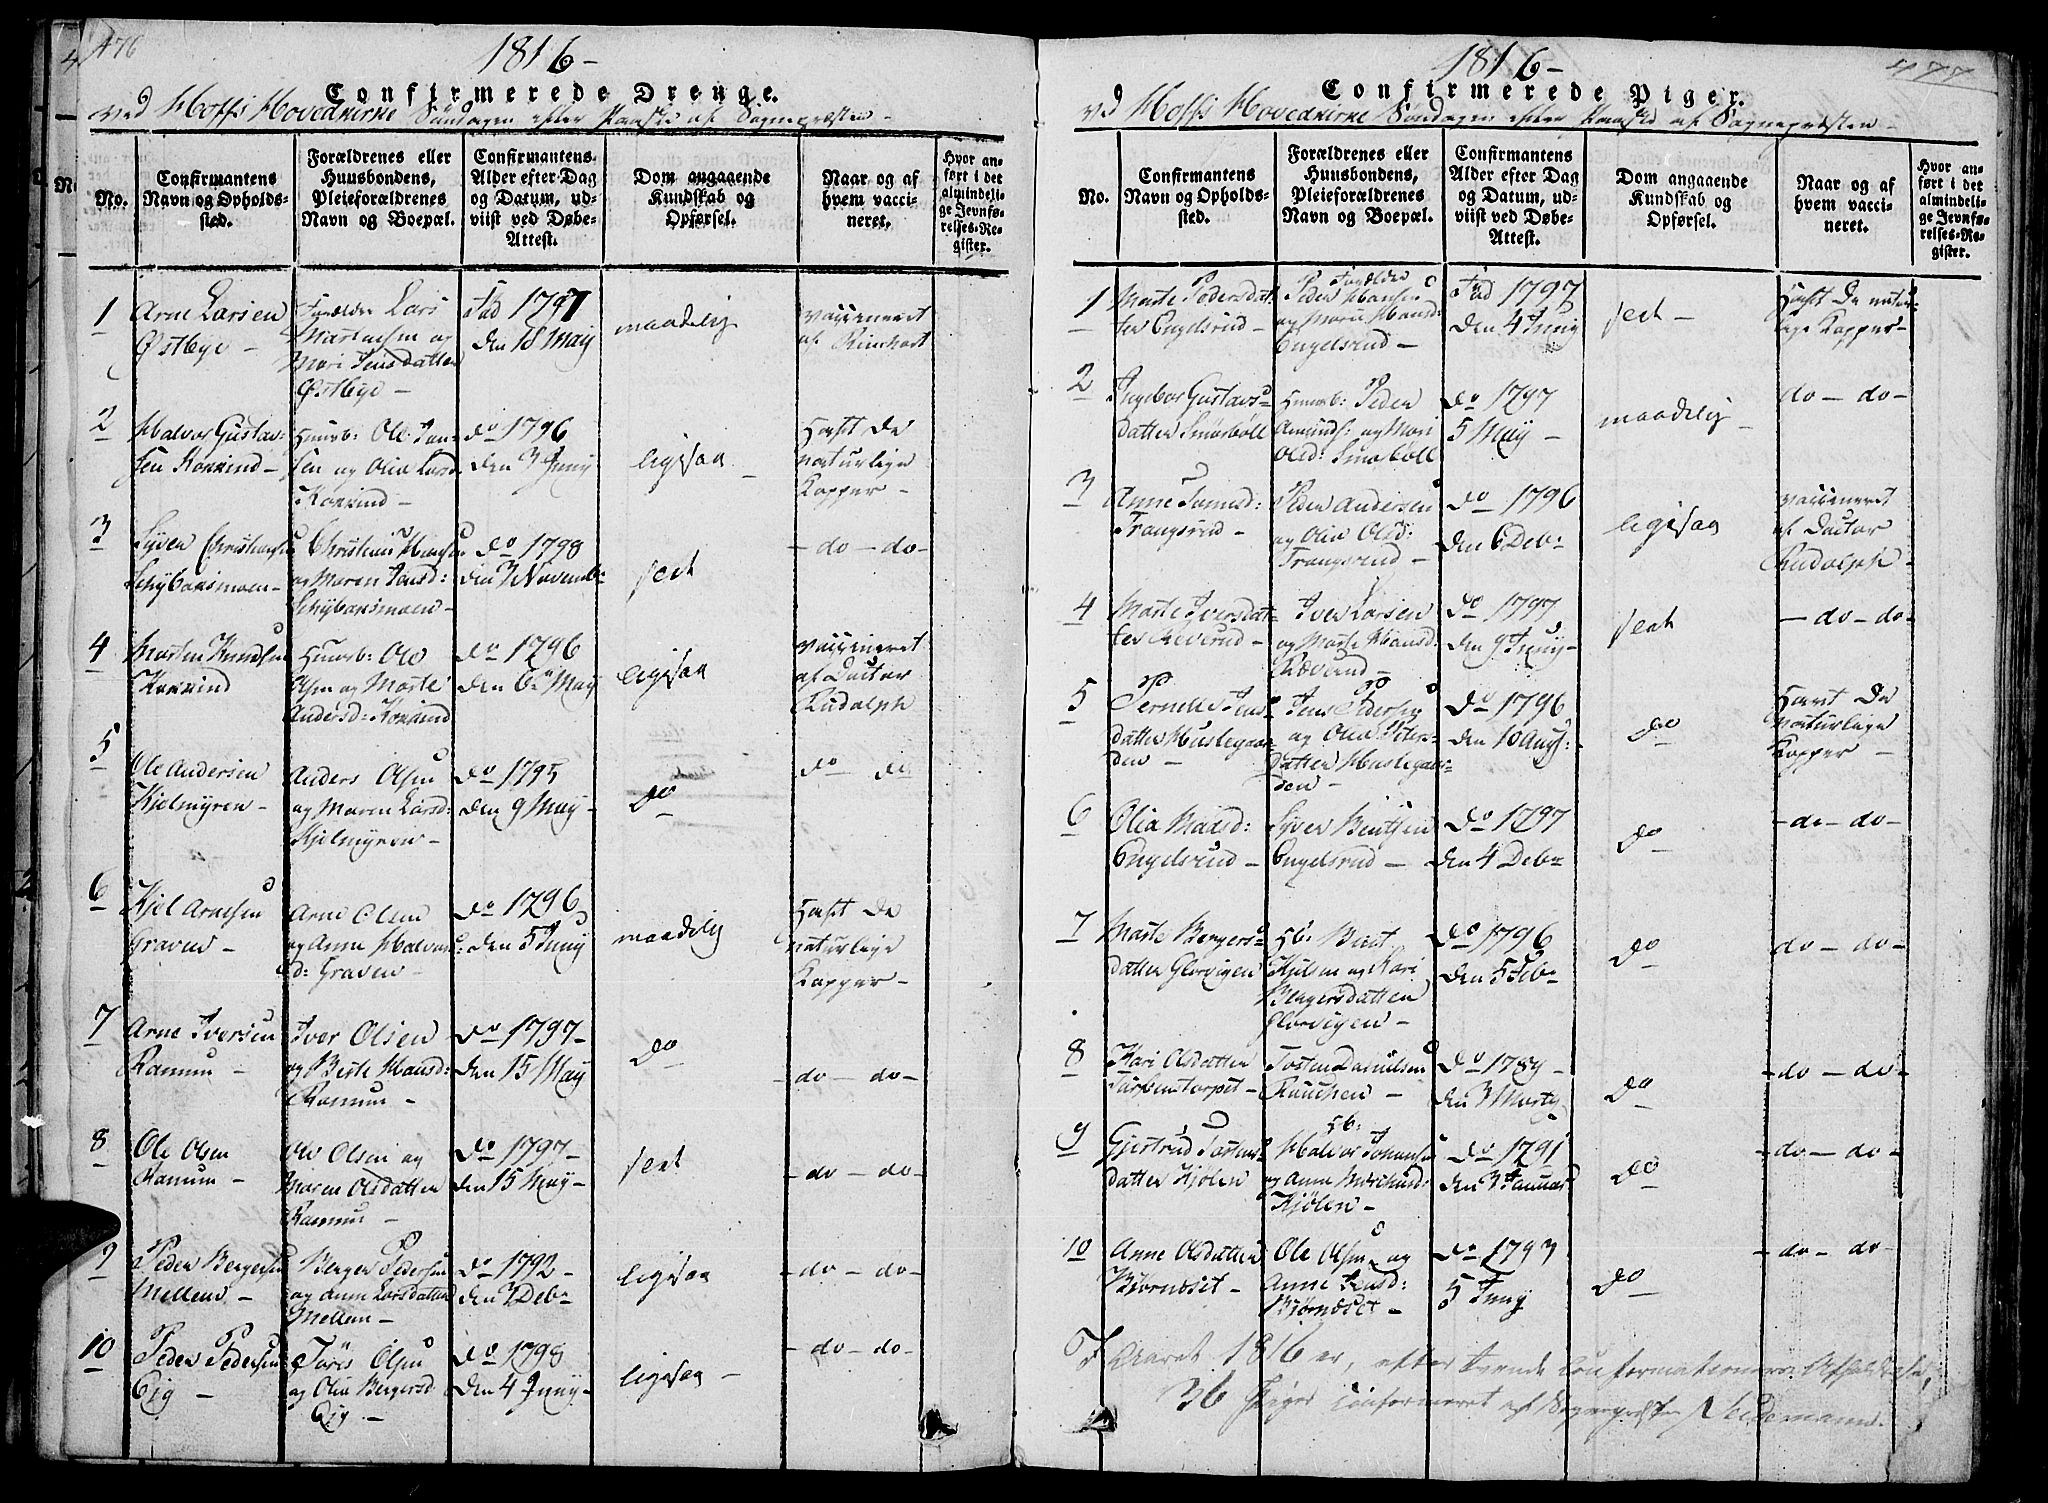 476
1816 –
Confirmerede Drenge.
ved Hoffs Hovedkirke Søndagen efter Paaske af Sognepræsten –
No.
Confirmantens Navn og Opholds-sted.
Forældrenes eller Huusbondens, Pleieforældrenes Navn og Boepæl.
Confirmantens Alder efter Dag og Datum, ud-viist ved Døbe-Attest.
Dom angaaende Kundskab og Opførsel.
Naar og af hvem vacci-neret.
Hvor an-ført i det almindeli-ge Jevnfø-relses-Re-gister.
1
Arne Larsen
Østbye –
Forældre Lars
og
Mari Jensdatter
Østbye –
Fød 1797
den 18 May
maadelig
vaccineret
af
2
Halvor Gustav:
sen Konrind –
Huusb: Ole Jen-
sen og Olia Larsd
Konrind –
do 1796
den 3 Juny
ligesaa
Havt de
naturlige
Kopper –
3
Syver Christiansen
Schybaksmoen –
Christian Hansen
og Maren Jensd:
Schybaksmoen –
do 1798
den 3 Novembr
slet
– do – do –
4
Morten Knudsen
Konrind
Huusb: Ole
Olsen og Marte
Andersd: Konrind
do 1796
den 6 May
ligesaa
vaccineret
af Doctor
Rudolph
5
Ole Andersen
Kjelmyren –
Anders Olsen
og Maren Larsd:
Kjelmyren –
do 1795
den 9 May –
do
do – do
6
Kjel Arnesen
Graven –
Arne Olsen
og Anne Halvor
d: Graven –
do 1796
den 5 Juny
maadelig
Havt de
naturlige
Kopper –
7
Arne Iversen
Ramum –
Iver Olsen
og Berte Hansd:
Ramum –
do 1797 –
den 15 May
do
– do – do –
8
Ole Olsen
Ramum –
Ole Olsen og
Maren Olsdatter
Ramum –
do 1797 –
den 15 May –
slet
– do – do –
9
Peder Bergersen
Mellem –
Berger Pedersen
og Anne Larsdatter
Mellem –
do 1792 –
den 3 Debr
ligesaa
– do – do –
10
Peder Pedersen
Eig –
Olsen
og Olia Bergersd
Eig –
do 1798
den 4 Juny –
ligesaa –
– do – do –
477
1816 –
Confirmerede Piger.
ved Hoffs Hovedkirke Søndagen efter Paaske af Sognepræsten –
No.
Confirmantens Navn og Opholds-sted.
Forældrenes eller Huusbondens, Pleieforældrenes Navn og Boepæl.
Confirmantens Alder efter Dag og Datum, ud-viist ved Døbe-Attest.
Dom angaaende Kundskab og Opførsel.
Naar og af hvem vacci-neret.
Hvor an-ført i det almindeli-ge Jevnfø-relses-Re-gister.
1
Marte Pedersdat-
ter Engelsrud –
Forældre
Peder Hansen
og Mari Hansd:
Engelsrud –
Fød 1797
den 4 Juny
slet –
Havt de natur-
lige Kopper –
2
Ingebor Gustavs-
datter Smørboll
Huusb: Peder
Amunds: og Mari
Olsd: Smørboll
do 1797
5 May –
maadelig –
do – do –
3
Anne
Trangsrud –
Peder Andersen
og Olia Olsd:
Trangsrud –
do 1796
den 6 Debr
ligesaa
vaccineret
af Doctor
Rudolph –
4
Marte Iversdat-
ter Ræverud –
Iver Larsen
og Marte Hansd:
Ræverud –
do 1797
den 9 Juny –
slet
– do – do –
5
Pernelle Jens-
datter Huslegaar-
den –
Jens Peders:
og Olia Peders-
datter Huslegaar-
den –
do 1796
den 10 Aug:
do
Havt de
naturlige
Kopper –
6
Olia Hansd:
Engelsrud –
Syver Bentsen
Engelsrud –
do 1797
den 4 Debr
do
– do – do –
7
Marte Bergers-
datter Glorvigen
Hb: Bent
Kjelsen og Kari
Bergersdatter
Glorvigen –
do 1796
den 5 Febr
do
do – do –
8
Kari Olsdatter
Tarpentorpet –
Tosten Danielsen
Rauchen –
do 1789 –
den 3 Marty
do
– do – do –
9
Gjertrud
datter Kjølen
Hb:
Halvor Johansen
og Anne
Kjølen –
do 1791
den 3 Januar
do
do – do –
10
Anne Olsdatter
Bjørneset –
Ole Olsen og
Anne Jensd:
Bjørneset –
do 1793
5 Juny
do
– do – do –
I Aaret 1816 er, efter tvende Confirmationers Afholdelse,
36 Piger Confirmeret af Sognepræsten